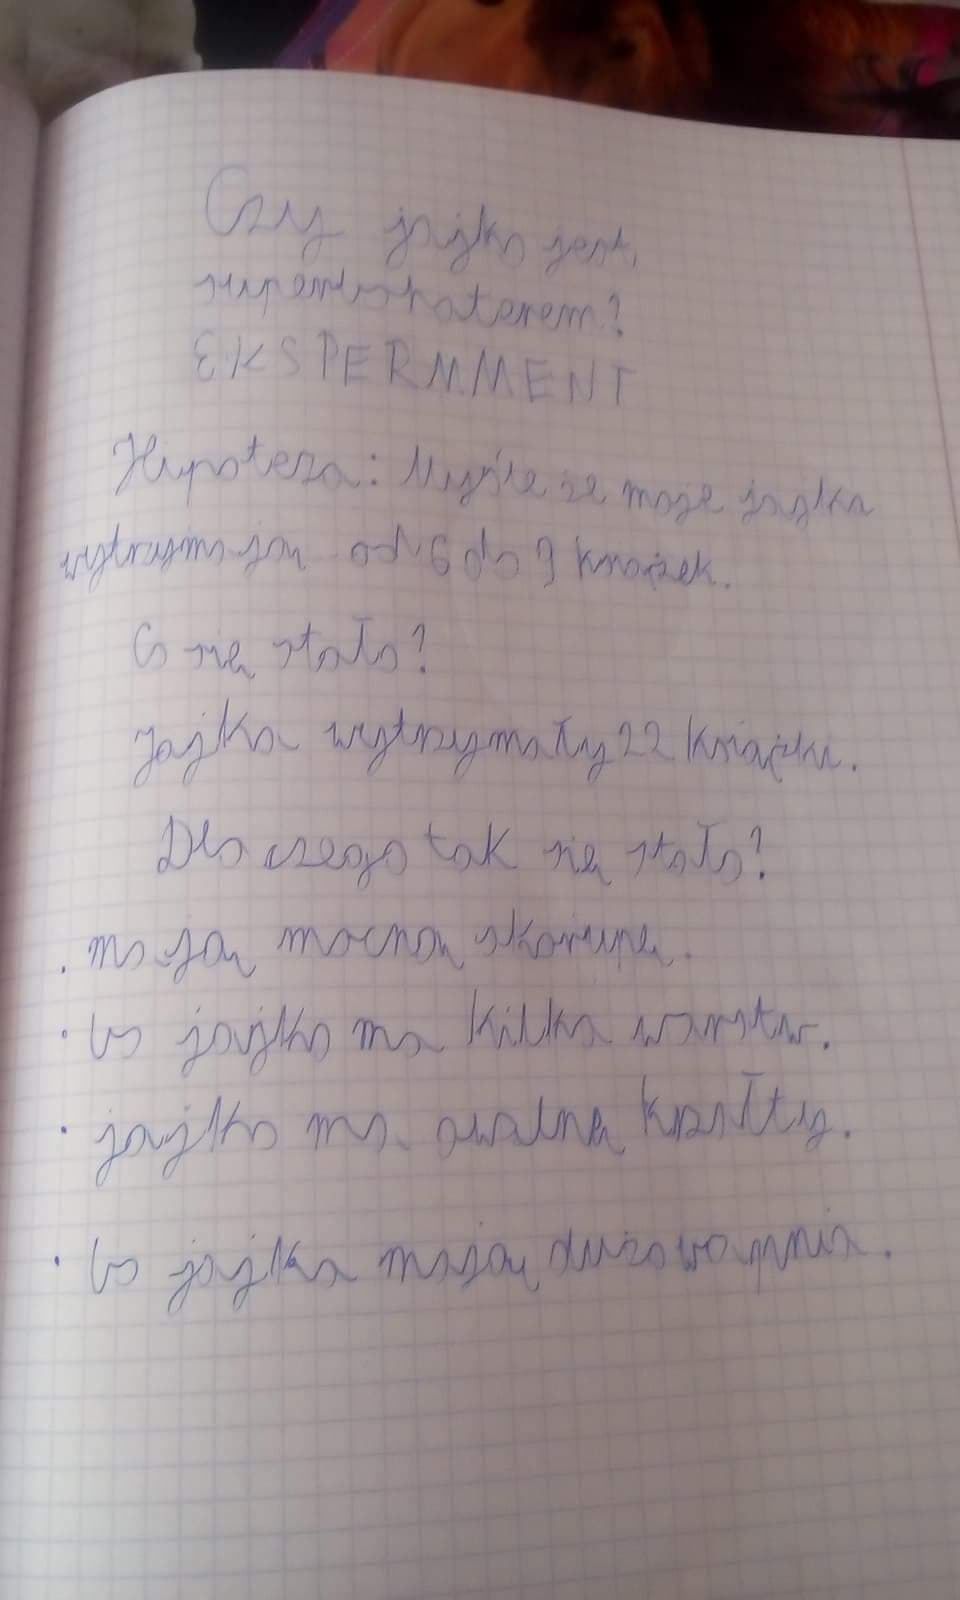 Czy jajko jest
superbohaterem?
EKSPERMMENT
Hipoteza: Myśle że moje jajka
wytrzymają od 6 do 9 książek.
Co się stało?
Jajka wytrzymały 22 książki.
Dlaczego tak się stało?
. mają mocną skorupę.
· bo jajko ma kilka warstw.
· jajko ma owalne kształty.
· bo jajka mają dużo wapnia.